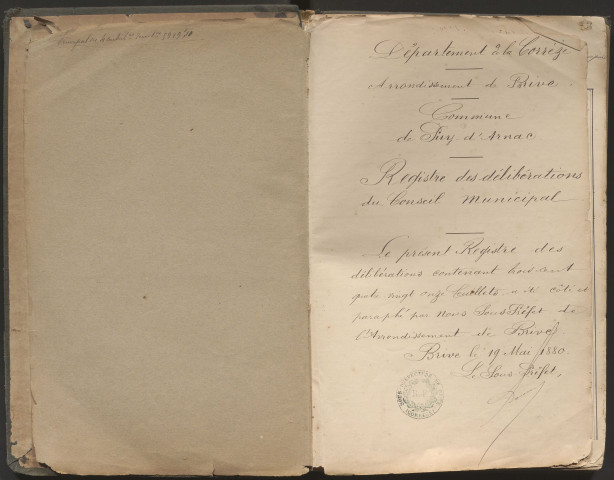 Département de la Corrèze
Arrondissement de Brive
Commune
de Puy d'Arnac
Registre des délibérations
du Conseil Municipal
Le présent Registre des
délibérations contenant trois cent
quatre vingt onze feuillets a été côté et
paraphé par nous Sous Préfet de
l'Arrondissement de Brive
Brive le 19 Mai 1880
Le Sous Préfet,